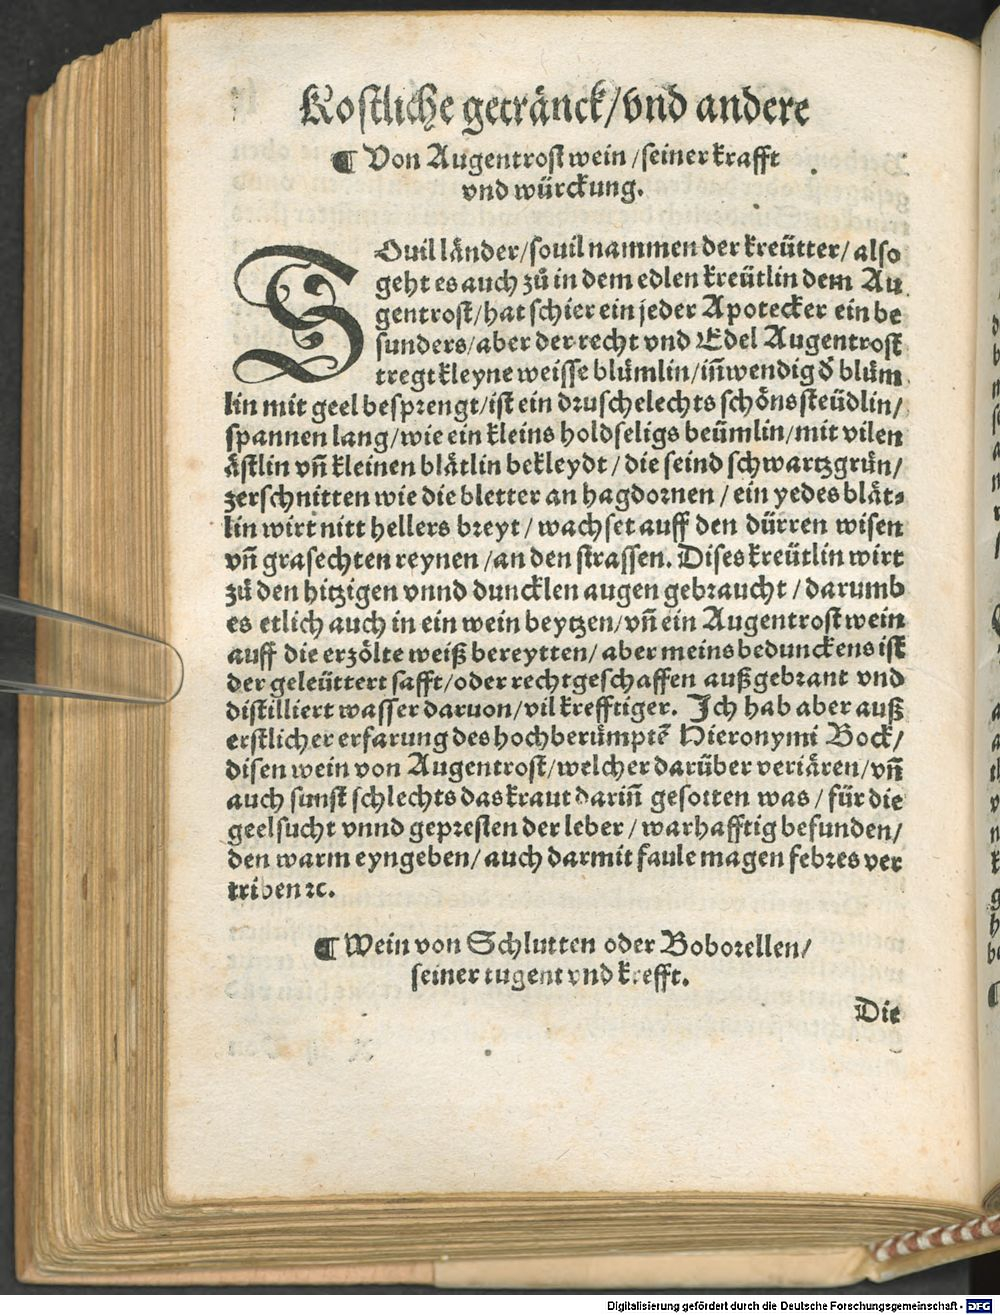 Kostliche getränck/vnd andere
¶ Von Augentrost wein/seiner krafft
vnd würckung.
SOuil länder/souil nammen der kreütter/also
geht es auch zů in dem edlen kreütlin dem Au
gentrost/hat schier ein jeder Apotecker ein be
sunders/aber der recht vnd Edel Augentrost
tregt kleyne weisse blümlin/iñwendig d̕ blům
lin mit geel besprengt/ist ein druschelechts schöns steüdlin/
spannen lang/wie ein kleins holdseligs beümlin/mit vilen
ästlin vñ kleinen blätlin bekleydt/die seind schwartzgrün/
zerschnitten wie die bletter an hagdornen/ein yedes blät-
lin wirt nitt hellers breyt/wachset auff den dürren wisen
vñ grasechten reynen/an den strassen. Dises kreütlin wirt
zů den hitzigen vnnd duncklen augen gebraucht/darumb
es etlich auch in ein wein beytzen/vñ ein Augentrost wein
auff die erzölte weiß bereytten/aber meins bedunckens ist
der geleüttert safft/oder rechtgeschaffen außgebrant vnd
distilliert wasser daruon/vil krefftiger. Ich hab aber auß
erstlicher erfarung des hochberůmptẽ Hieronymi Bock/
disen wein von Augentrost/welcher darüber veriären/vñ
auch sunst schlechts das kraut dariñ gesotten was/für die
geelsucht vnnd gepresten der leber/warhafftig befunden/
den warm eyngeben/auch darmit faule magen febres ver
triben ꝛc.
¶ Wein von Schlutten oder Boborellen/
seiner tugent vnd krefft.
Die
Digitalisierung gefördert durch die Deutsche Forschungsgemeinschaft - DFG